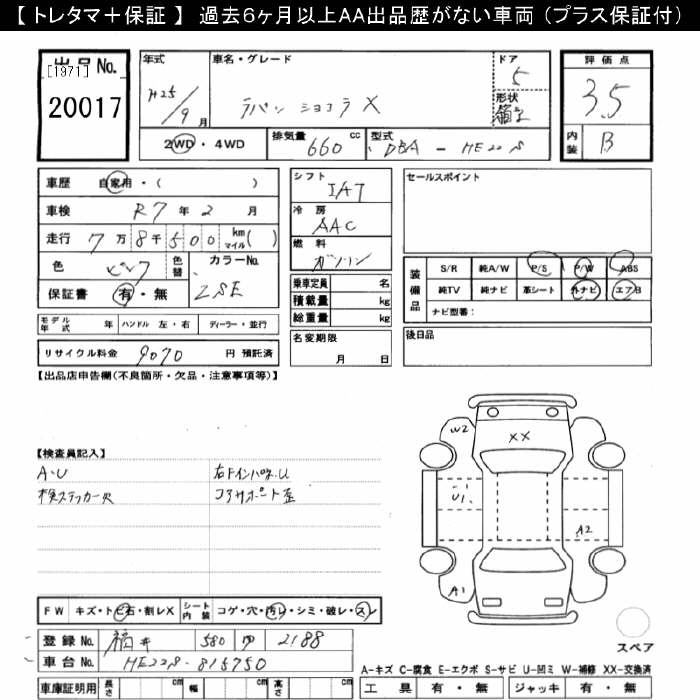 【 トレタマ＋保証 】 過去6ヶ月以上AA出品歴がない車両（プラス保証付）
出品No.
[1971]
20017
年式
H25/9月
車名・グレード
ラパン ショコラ X
ドア
5
形状
箱型
評価点
3.5
内装
B
2WD・4WD
排気量
660 cc
型式
DBA - HE22S
車歴 自家用・( )
車検 R7年2月
走行 7万8千500 km マイル( )
色 ピンク 色替
カラーNo.
ZSE
保証書 有・無
シフト
IAT
冷房
AAC
燃料
ガソリン
乗車定員 名
積載量 kg
総重量 kg
名変期限
月 日
セールスポイント
装備品
S/R 純A/W P/S P/W ABS
純TV 純ナビ 革シート 外ナビ エアB
ナビ型番：
後日品
モデル年式 年 ハンドル 左・右 ディーラー・並行
リサイクル料金 9070 円 預託済
【出品店申告欄(不良箇所・欠品・注意事項等)】
【検査員記入】
A・U
検ステッカー欠
右Fインパネ.U
コアサポート歪
W2
XX
U1
A2
A1
スペア
FW キズ・トビ石・割レX
シート内装 コゲ・穴・汚レ・シミ・破レ・スレ
登録No. 福井 580 ゆ 2188
車台No. HE22S-815750
車庫証明用 長さ cm 幅 cm 高さ cm
A-キズ C-腐食 E-エクボ S-サビ U-凹ミ W-補修 XX-交換済
工具 有・無 ジャッキ 有・無